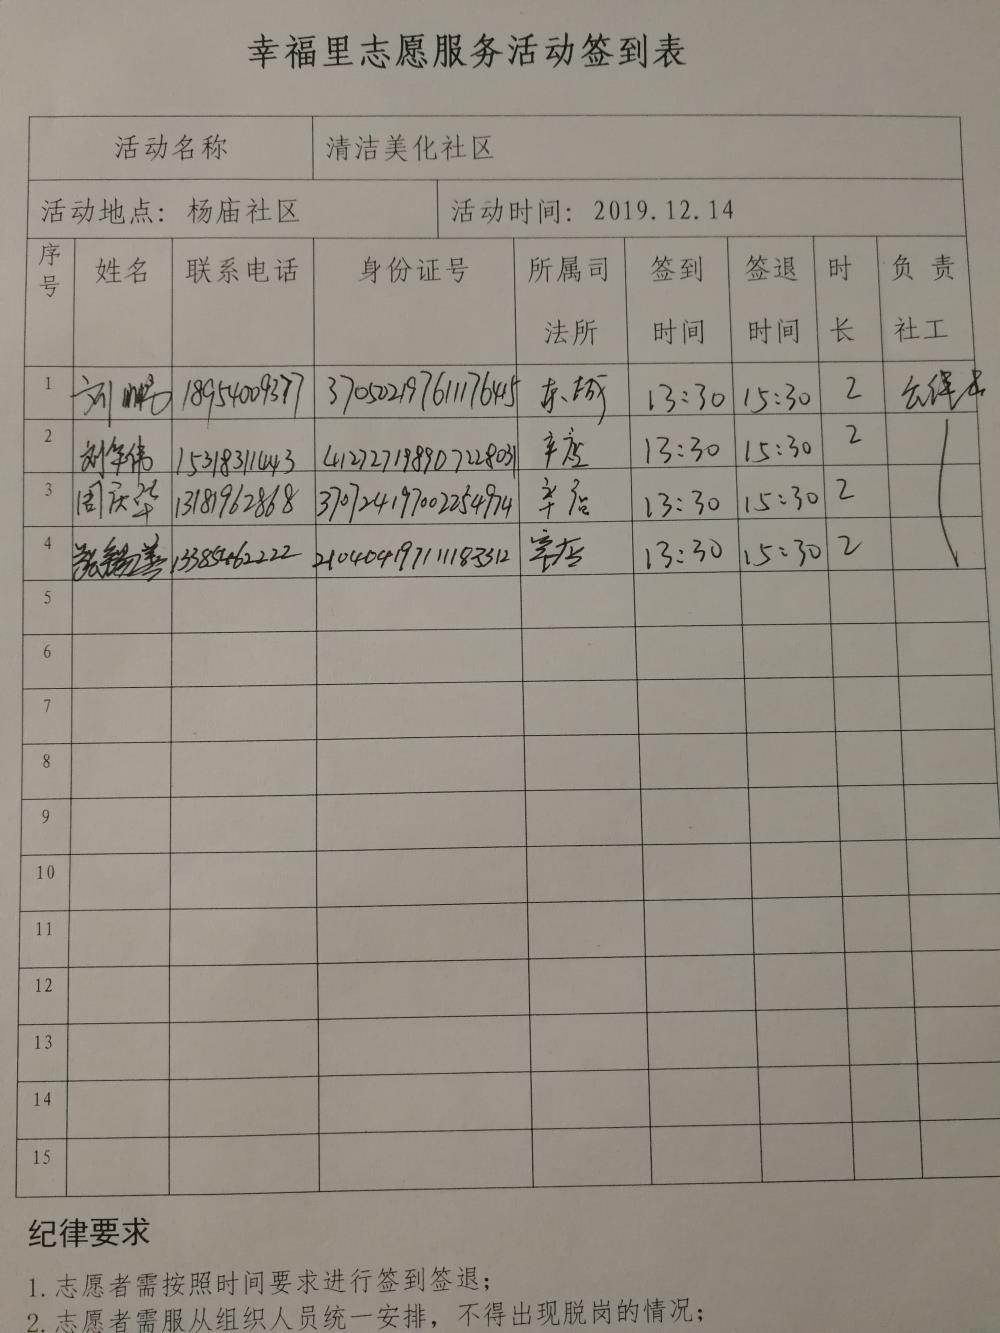 幸福里志愿服务活动签到表
活动名称 清洁美化社区
活动地点：杨庙社区 活动时间：2019.12.14
序号 姓名 联系电话 身份证号 所属司法所 签到时间 签退时间 时长 负责社工
1 刘鹏 18954009377 370502197611176415 东城 13:30 15:30 2
2 刘军伟 15318311443 412727198907228031 辛店 13:30 15:30 2
3 周庆华 13181962868 370724197002254974 辛店 13:30 15:30 2
4 13385462222 210404197111183312 辛店 13:30 15:30 2
5
6
7
8
9
10
11
12
13
14
15
纪律要求
1.志愿者需按照时间要求进行签到签退；
2.志愿者需服从组织人员统一安排，不得出现脱岗的情况；